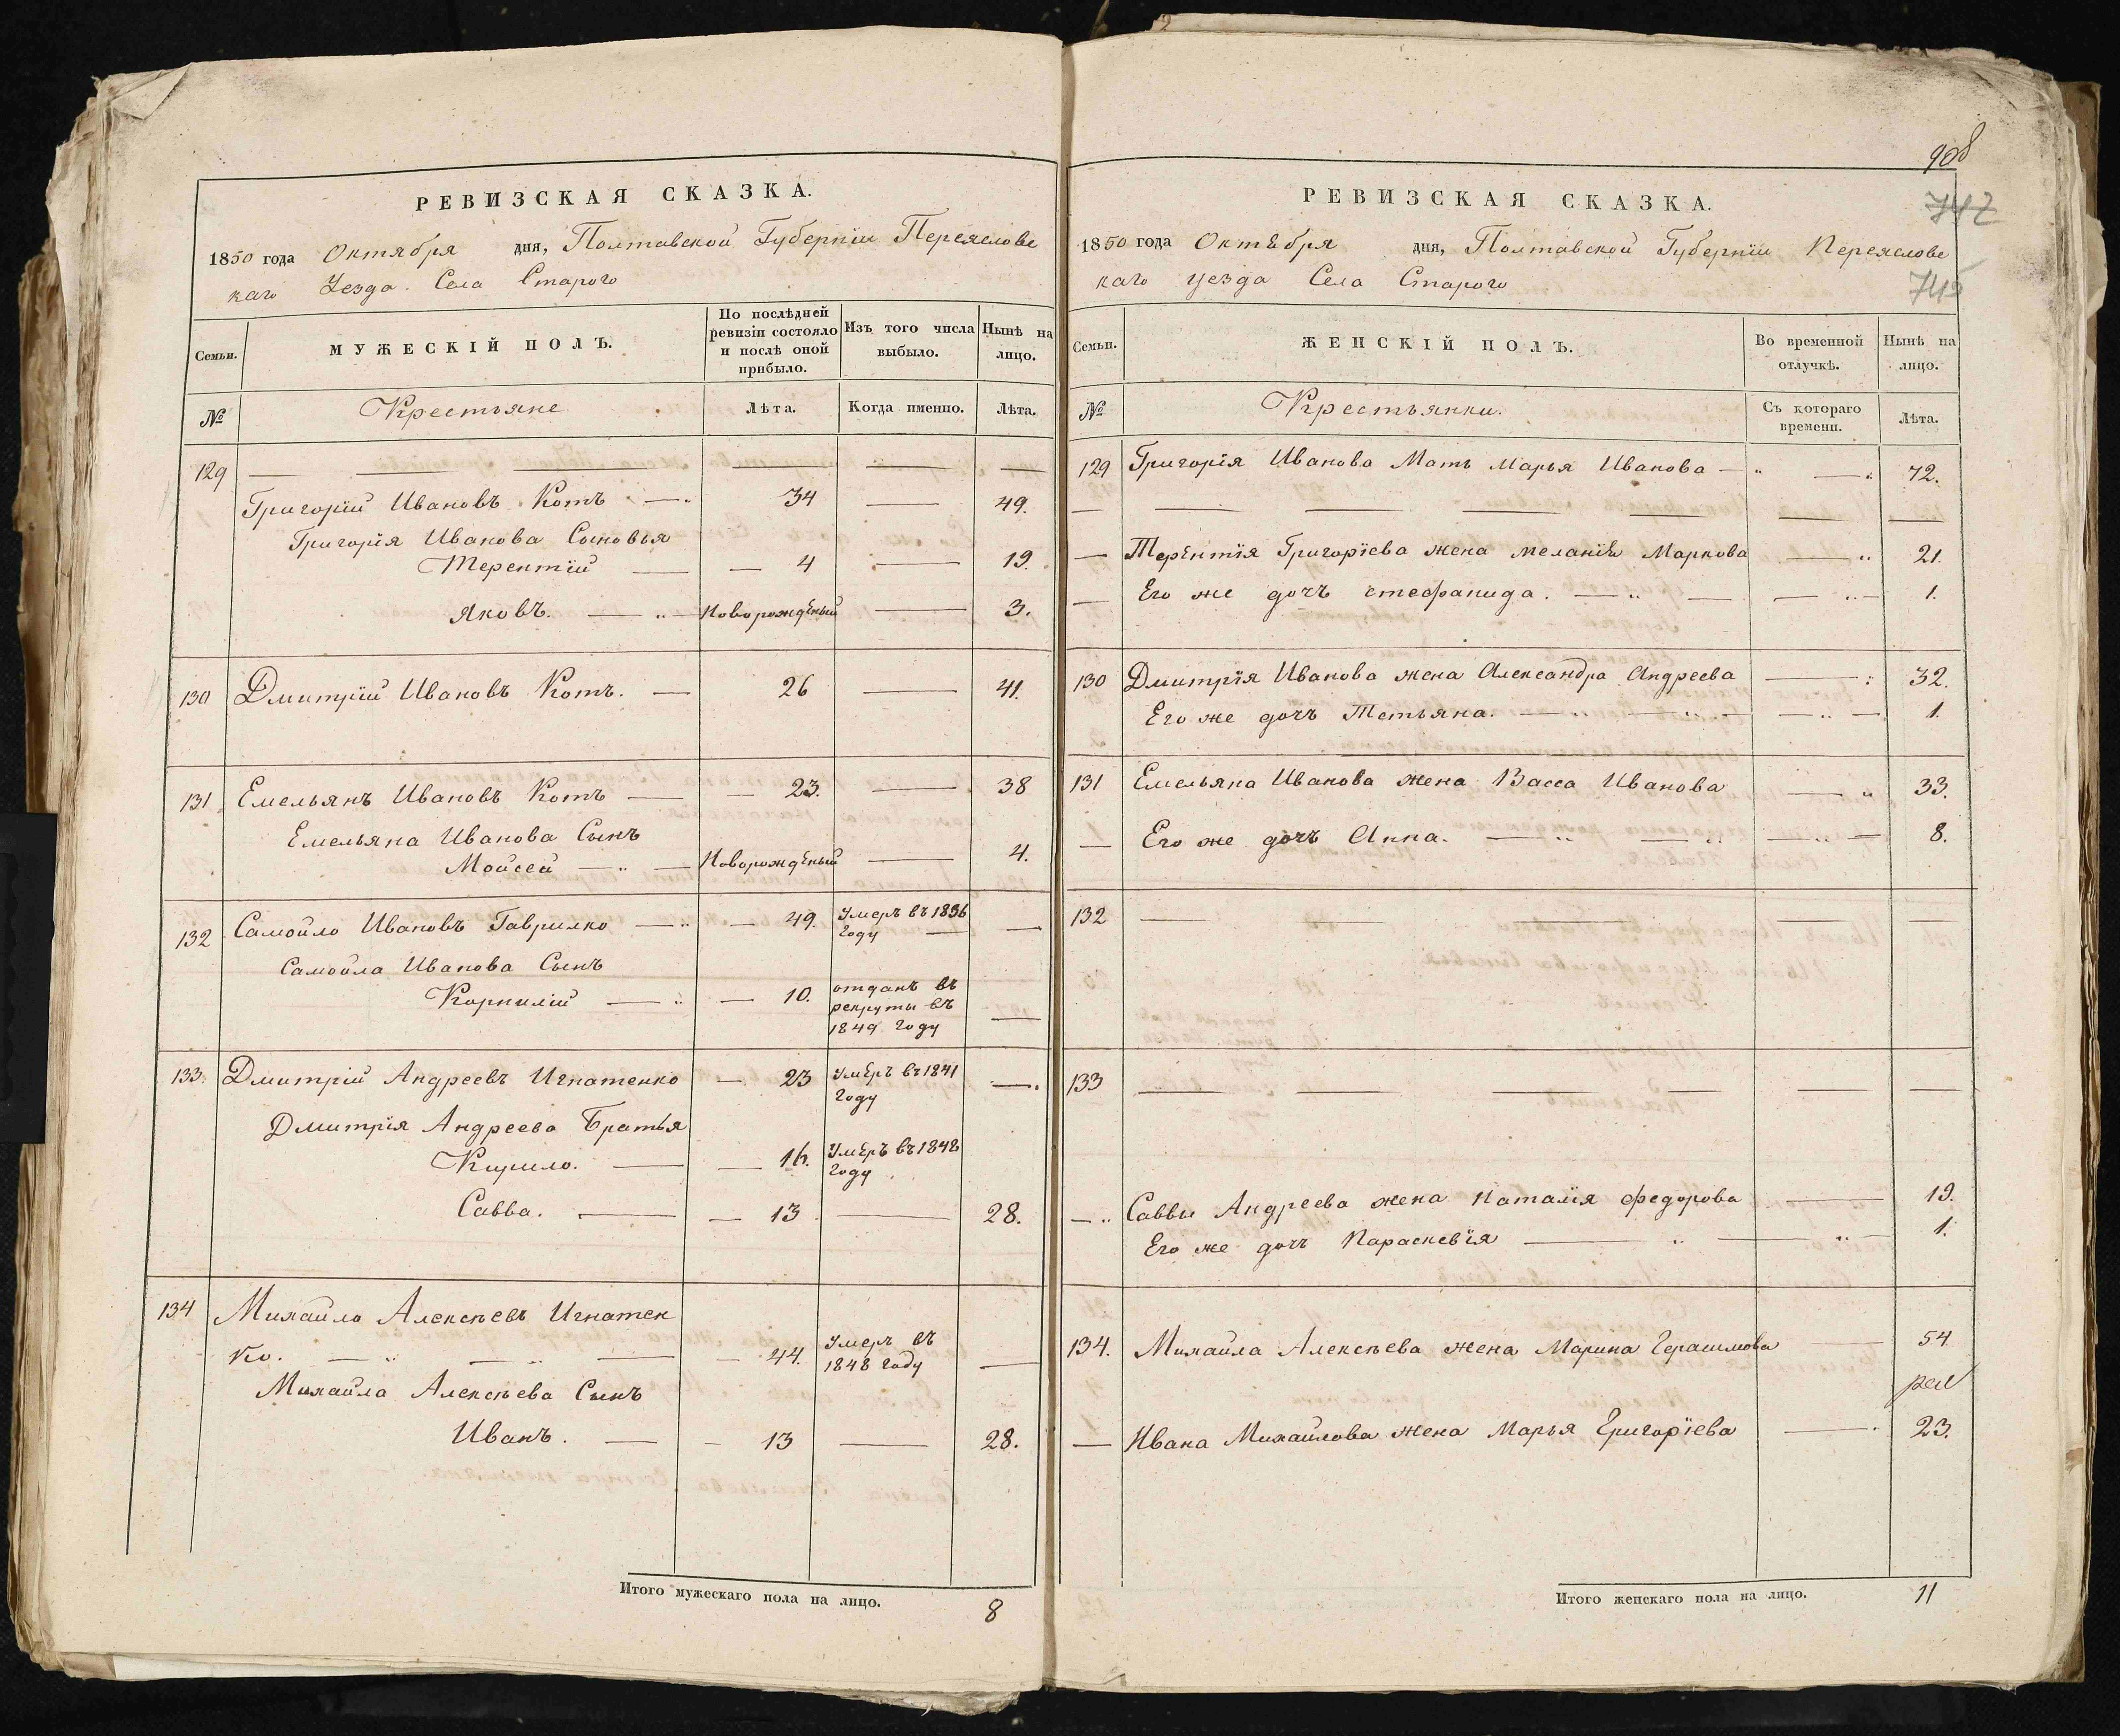 РЕВИЗСКАЯ СКАЗКА.
1850 года Октября дня, Полтавской Губерніи Переяславс
каго Уезда. Села Старого
Семьи.
МУЖЕСКІЙ ПОЛЪ.
По послѣдней ревизіи состояло и послѣ оной прибыло.
Изъ того числа выбыло.
Нынѣ на лицо.
№ Крестьяне Лѣта. Когда именно. Лѣта.
129
Григорій Ивановъ Котъ 34 49.
Григорія Иванова Сыновья
Терентій 4 19.
Яковъ. Новорожденый 3.
130 Дмитрій Ивановъ Котъ. 26 41.
131 Емельянъ Ивановъ Котъ 23. 38
Емельяна Иванова Сынъ
Мойсей Новорожденый 4.
132 Самойло Ивановъ Гаврилко 49. Умеръ въ 1836
году
Самойла Иванова Сынъ
Корнилій 10. отданъ въ
рекруты въ
1849 году
133. Дмитрій Андреевъ Игнатенко 23 Умеръ въ 1841
году
Дмитрія Андреева Братья
Кирило. 16. Умеръ въ 1848
году
Савва. 13 28.
134 Михайло Алексѣевъ Игнатен
ко. 44. Умеръ въ
1848 году
Михайла Алексѣева Сынъ
Иванъ. 13 28.
Итого мужескаго пола на лицо. 8
908
742
745
РЕВИЗСКАЯ СКАЗКА.
1850 года Октября дня, Полтавской Губерніи Переяславс
каго уезда Села Старого
Семьи.
ЖЕНСКІЙ ПОЛЪ.
Во временной отлучкѣ.
Нынѣ на лицо.
№ Крестьянки. Съ котораго времени. Лѣта.
129 Григорія Иванова Мать Марья Иванова 72.
Терентія Григоріева жена Меланія Маркова 21.
Его же дочъ Стефанида. 1.
130 Дмитрія Иванова жена Александра Андреева 32.
Его же дочъ Тетьяна. 1.
131 Емельяна Иванова жена Васса Иванова 33.
Его же дочъ Анна. 8.
132
133
Саввы Андреева жена Наталія Федорова 19.
Его же дочъ Параскевія 1.
134. Михайла Алексѣева жена Марина Герасимова 54
Ивана Михайлова жена Марья Григоріева 23.
Итого женскаго пола на лицо. 11